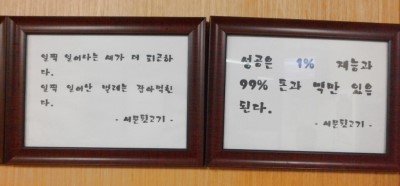 일찍 일어나는 새가 더 피곤하
다.
일찍 일어난 벌레는 잡아먹힌
다.
- 서분필고기 -
성공은 1% 재능과
99% 돈과 빽만 있음
된다.
- 서분필고기 -